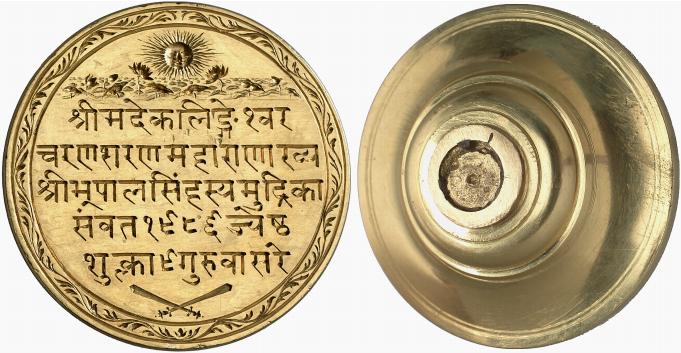 श्रीमदेकलिङ्गेश्वर
चरणशरणमहाराणाख्य
श्रीभूपालसिंहस्यमुद्रिका
संवत १९९६ ज्येष्ठ
शुक्ला ९ गुरुवासरे